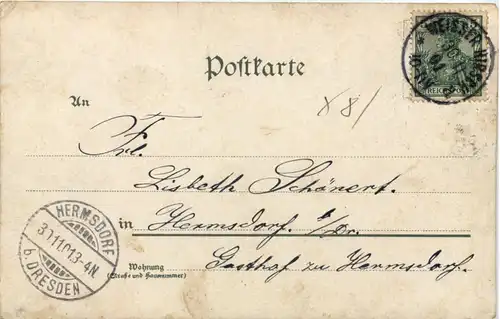 WEISSER HIRSCH
REICHSPOST
Postkarte
An
Frl.
Lisbeth Schönert.
in Hermsdorf b/Dr.
Gasthof zu Hermsdorf.
Wohnung
(Straße und Hausnummer)
HERMSDORF
3-4N.
b. DRESDEN